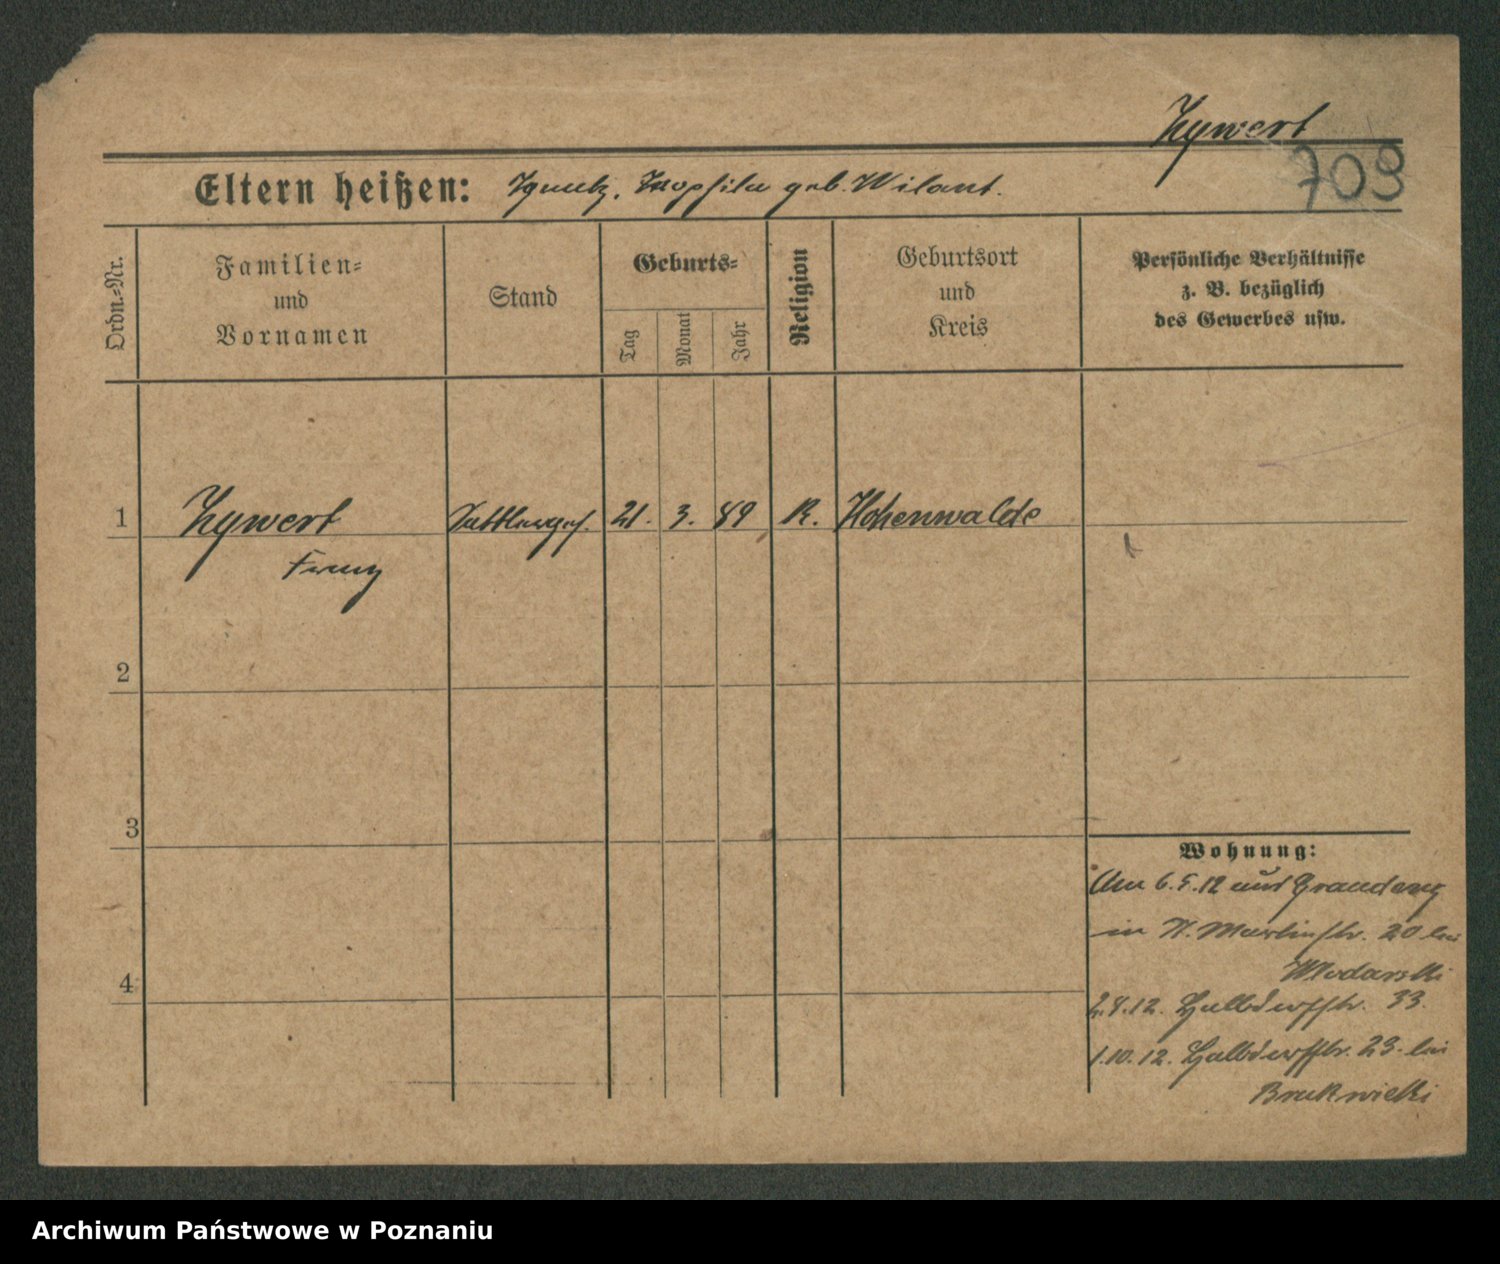 Zywert
709
Eltern heißen: Ignatz, Teophila geb. Wilant.
Ordn.-Nr.
Familien-
und
Vornamen
Stand
Geburts-
Tag
Monat
Jahr
Religion
Geburtsort
und
Kreis
Persönliche Verhältnisse
z. B. bezüglich
des Gewerbes usw.
1 Zywert Sattlerges. 21. 3. 89 R. Hohenwalde
Franz
2
3
4
Wohnung:
Am 6.5.12 aus Graudenz
in St. Martinstr. 20 bei
Wlodarski
2.8.12. Halbdorfstr. 33.
1.10.12. Halbdorfstr. 23. bei
Archiwum Państwowe w Poznaniu